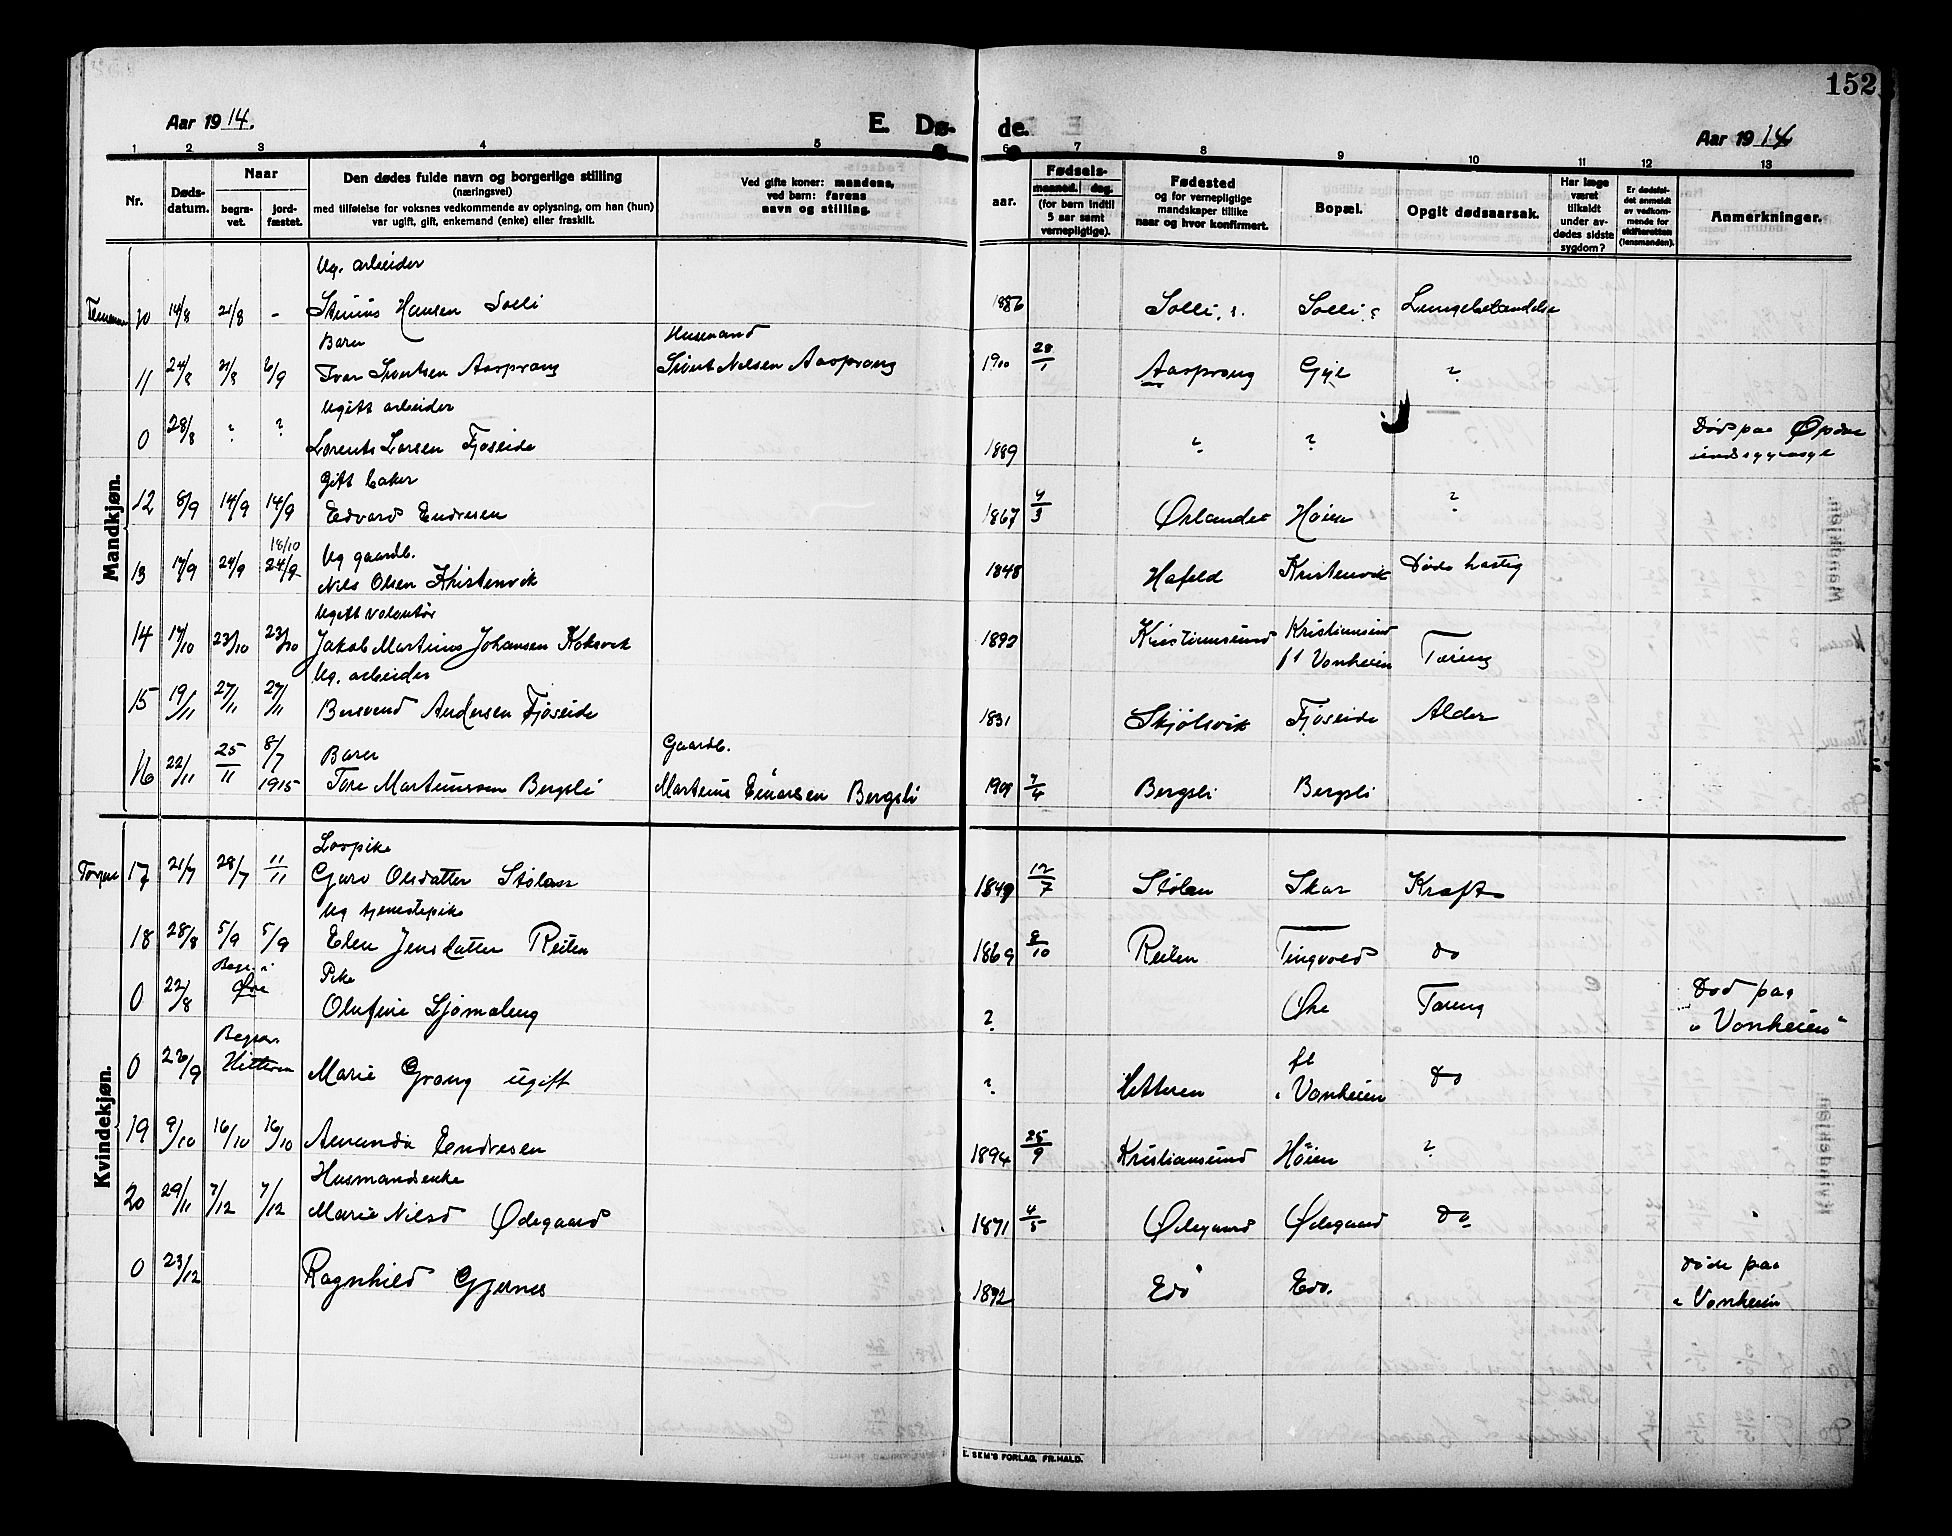 152
Aar 1914.
E. Dø- de.
Aar 1914
1 2 3 4 5 6 7 8 9 10 11 12 13
Nr.
Døds-
datum.
Naar
begra-
vet.
jord-
fæstet.
Den dødes fulde navn og borgerlige stilling
(næringsvei)
med tilføielse for voksnes vedkommende av oplysning, om han (hun)
var ugift, gift, enkemand (enke) eller fraskilt.
Ved gifte koner: mandens,
ved børn: farens
navn og stilling.
aar.
Fødsels-
maaned. dag.
(for børn indtil
5 aar samt
vernepligtige).
Fødested
og for vernepligtige
mandskaper tillike
naar og hvor konfirmert.
Bopæl.
Opgit dødsaarsak.
Har læge
været
tilkaldt
under av-
dødes sidste
sygdom?
Er dødsfal-
det anmeldt
av vedkom-
mende for
skifteretten
(lensmanden).
Anmerkninger.
Mandkjøn.
Ug. arbeider
10 14/8 21/8 - Hansen Solli 1886 Solli Solli Lungebetændelse
Barn Husmand
11 24/8 31/8 6/9 Ivar Sivertsen Aasprong Sivert Nilsen Aasprong 1900 28/1 Aasprong Gyl ?
Ugift arbeider
0 28/8 ? ? Lorents Larsen Fjøseide 1889 ? ? Død paa
Gift baker
12 8/9 14/9 14/9 Edvard Endresen 1867 4/3 Ørlandet Høien ?
18/10
Ug gaardb.
13 17/9 24/9 24/9 Nils Olsen Kristenvik 1848 Hafeld Kristenvik Døde hastig
Ugift volontør
14 17/10 23/10 23/10 Jakob Martinus Johansen Koksvik 1892 Kristiansund Kristiansund
Vonheim Tæring
Ug. arbeider
15 19/11 27/11 27/11 Bersvend Andersen Fjøseide 1831 Skjølsvik Fjøseide Alder
Barn Gaardb.
16 22/11 25/11 8/7 1915 Tore Martinussen Bergsli Martinus Einarsen Bergsli 1909 7/4 Bergsli Bergsli
Kvindekjøn.
Torjul
17 21/7 28/7 11/11 Guro Olsdatter Stølan 1849 12/7 Stølan Skar Kræft
Ug tjenestepike
18 28/8 5/9 5/9 Elen Jensdatter Reiten 1869 8/10 Reiten Tingvold do
Pike
0 22/8 Begr. i Øre Olufine 2 Øre Tæring Død paa
"Vonheim"
0 26/9 Begrav. Hitteren Marie Grong ugift ? Hitteren
fl
Vonheim do
19 9/10 16/10 16/10 Amanda Endresen 1894 25/9 Kristiansund Høien ?
Husmandsenke
20 29/11 7/12 7/12 Marie Nilsd Ødegaard 1871 4/5 Ødegaard Ødegaard do
0 23/12 Ragnhild Gjernes 1892 Edø Edø. Døde paa
"Vonheim
E. SEM'S FORLAG, FR.HALD.